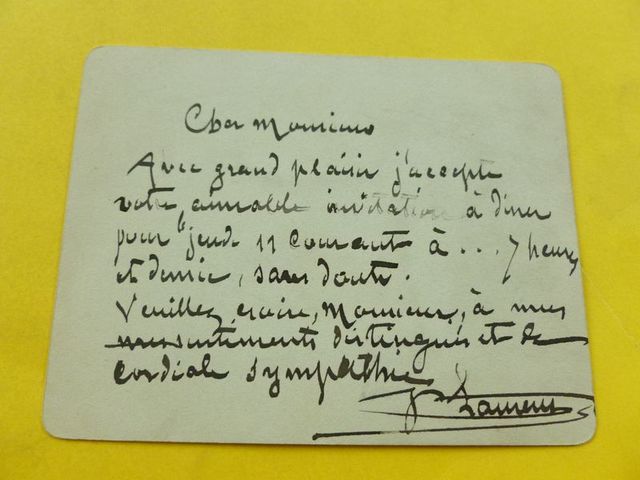 Cher Monsieur
Avec grand plaisir j'accepte
votre aimable invitation à diner
pour jeudi 11 courant à... 7 heures
et demie, sans doute.
Veuillez croire, Monsieur, à mes
sentiments distingués et de
cordiale sympathie